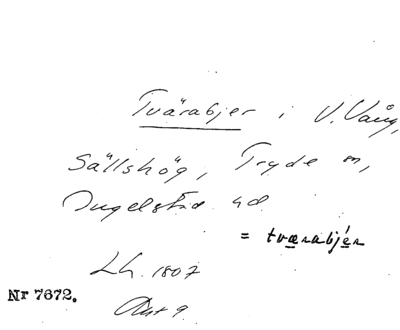 Tvärabjer i V. Vång,
Sällshög, Tryde sn,
Ingelstad hd.
= tværabjér
Lh. 1807
Nr 7672.
Akt 9.